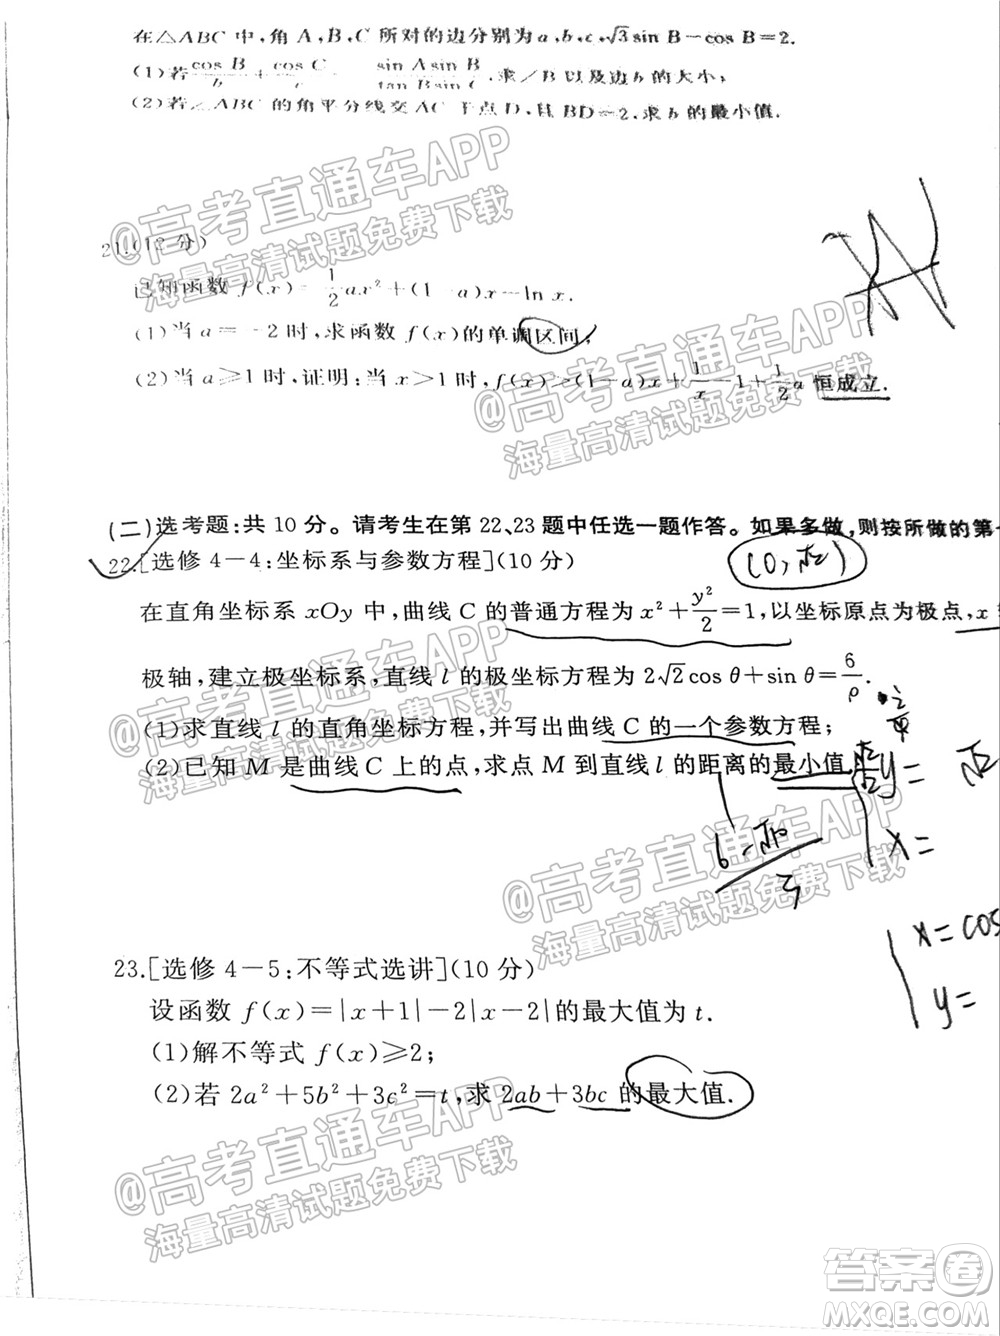 在△ABC 中,角 A,B,C 所对的边分别为 a,b,c,√3 sin B-cos B=2.
(1)若 cos B/b + cos C = sin A sin B/tan B sin C,求∠B 以及边 b 的大小;
(2)若 ABC 的角平分线交 AC 于点 D,且 BD=2,求 b 的最小值.
21.(12 分)
已知函数 f(x)= 1/2 ax²+(1-a)x-ln x.
(1)当 a=-2 时,求函数 f(x)的单调区间;
(2)当 a≥1 时,证明:当 x>1 时,f(x)>(1-a)x+1/x-1+1/2 a 恒成立.
(二)选考题:共 10 分。请考生在第 22、23 题中任选一题作答。如果多做,则按所做的第一
22.[选修 4-4:坐标系与参数方程](10 分)
在直角坐标系 xOy 中,曲线 C 的普通方程为 x²+y²/2=1,以坐标原点为极点,x
极轴,建立极坐标系,直线 l 的极坐标方程为 2√2 cos θ+sin θ=6/ρ.
(1)求直线 l 的直角坐标方程,并写出曲线 C 的一个参数方程;
(2)已知 M 是曲线 C 上的点,求点 M 到直线 l 的距离的最小值
y=
x=
x=cos
y=
23.[选修 4-5:不等式选讲](10 分)
设函数 f(x)=|x+1|-2|x-2|的最大值为 t.
(1)解不等式 f(x)≥2;
(2)若 2a²+5b²+3c²=t,求 2ab+3bc 的最大值.
@高考直通车APP
海量高清试题免费下载
@高考直通车APP
海量高清试题免费下载
@高考直通车APP
海量高清试题免费下载
@高考直通车APP
海量高清试题免费下载
@高考直通车APP
海量高清试题免费下载
答案卷
MXQE.COM